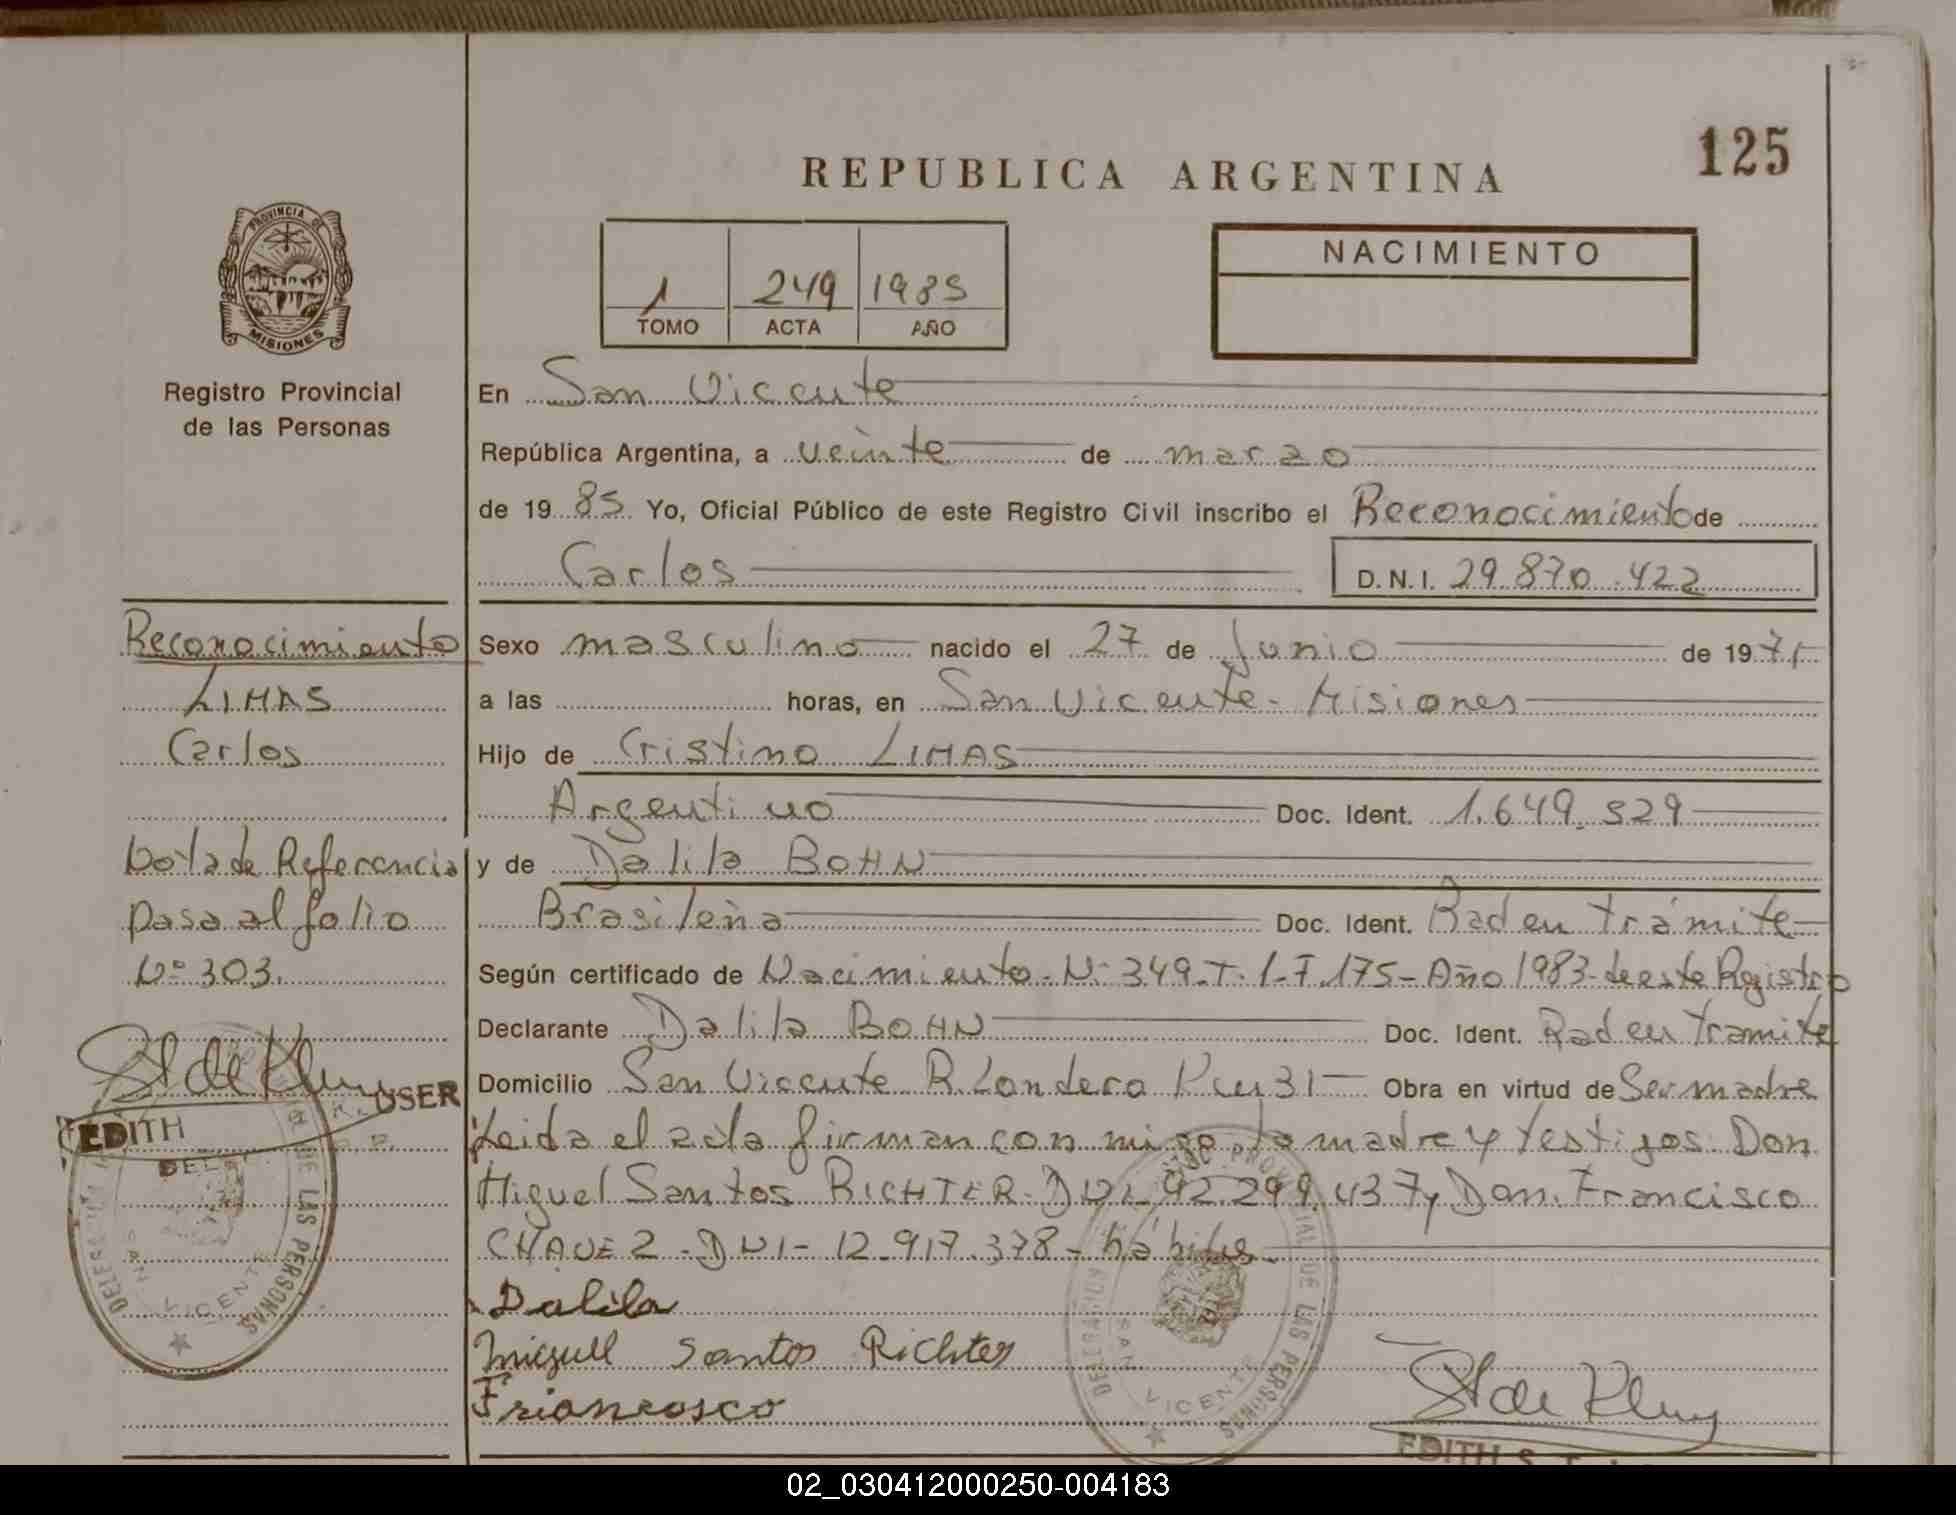 125
REPUBLICA ARGENTINA
PROVINCIA DE
MISIONES
1 249 1985
TOMO ACTA AÑO
NACIMIENTO
Registro Provincial
de las Personas
En San Vicente
República Argentina, a veinte de marzo
de 19 85 Yo, Oficial Público de este Registro Civil inscribo el Reconocimiento de
Carlos D.N.I. 29.870.422
Reconocimiento
LIMAS
Carlos
Nota de Referencia
pasa al folio
Nº 303.
Sexo masculino nacido el 27 de Junio de 19 71
a las horas, en San Vicente - Misiones
Hijo de Cristino LIMAS
Argentino Doc. Ident. 1.649.529
y de Dalila BOHN
Brasileña Doc. Ident. Rad en trámite
Según certificado de Nacimiento - Nº 349 - T. 1 - F. 175 - Año 1983 - de este Registro
Declarante Dalila BOHN Doc. Ident. Rad en tramite
Domicilio San Vicente R. Londero Km 31 Obra en virtud de Ser madre
Leida el acta firman con migo la madre y testigos Don
Miguel Santos RICHTER. DNI. 92.299.437 y Don Francisco
CHAVEZ - DNI - 12.917.378 - hábiles
Dalila
Miguel Santos Richter
Francosco
EDITH
USER
DEL
DELEGACION
DE LAS PERSONAS
SAN VICENTE
DELEGACION
PROVINCIAL DE LAS PERSONAS
SAN VICENTE
EDITH S.
02_030412000250-004183